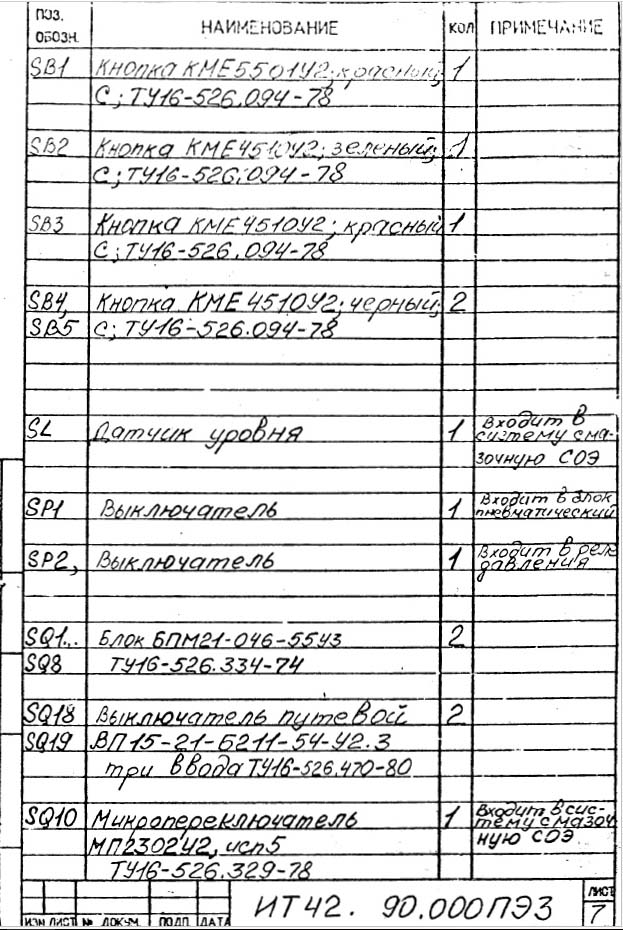 ПОЗ. ОБОЗН. НАИМЕНОВАНИЕ КОЛ ПРИМЕЧАНИЕ
SB1 Кнопка КМЕ5501У2; красный; 1
С; ТУ16-526.094-78
SB2 Кнопка КМЕ4510У2; зеленый; 1
С; ТУ16-526.094-78
SB3 Кнопка КМЕ4510У2; красный 1
С; ТУ16-526.094-78
SB4, Кнопка КМЕ4510У2; черный; 2
SB5 С; ТУ16-526.094-78
SL Датчик уровня 1 Входит в
систему сма-
зочную СОЭ
SP1 Выключатель 1 Входит в блок
пневматический
SP2, Выключатель 1 Входит в реле
давления
SQ1... Блок БПМ21-046-55У3 2
SQ8 ТУ16-526.334-74
SQ18 Выключатель путевой 2
SQ19 ВП15-21-Б211-54-У2.3
три ввода ТУ16-526.470-80
SQ10 Микропереключатель 1 Входит в сис-
тему смазоч-
МП2302У2, исп5 ную СОЭ
ТУ16-526.329-78
ИЗМ ЛИСТ № ДОКУМ. ПОДП. ДАТА
ИТ42. 90.000ПЭ3
ЛИСТ
7